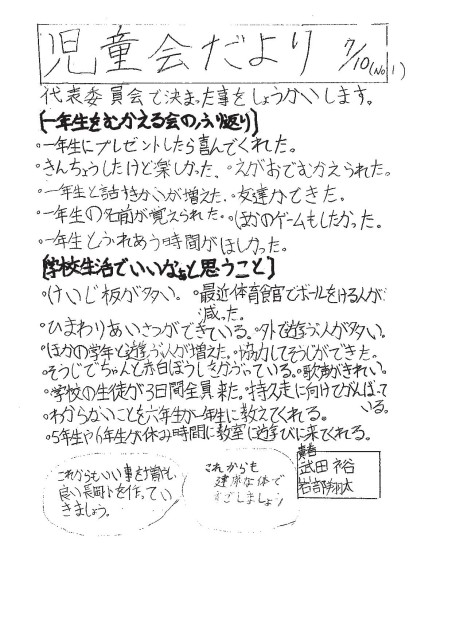 児童会だより 7/10(No1)
代表委員会で決まった事をしょうかいします。
[一年生をむかえる会のふり返り]
・一年生にプレゼントしたら喜んでくれた。
・きんちょうしたけど楽しかった、・えがおでむかえられた。
・一年生と話すきかいが増えた、・友達ができた。
・一年生の名前が覚えられた・ほかのゲームもしたかった。
・一年生とふれあう時間がほしかった。
[学校生活でいいなぁと思うこと]
・けいじ板が多い。・最近体育館でボールをける人が
減った。
・ひまわりあいさつができている。・外で遊ぶ人が多い。
・ほかの学年と遊ぶ人が増えた。・協力してそうじができた。
・そうじでちゃんと赤白ぼうしをかぶっている。・歌声がきれい。
・学校の生徒が3日間全員来た。・持久走に向けてがんばって
いる。
・わからないことを六年生が一年生に教えてくれる。
・5年生や6年生が休み時間に教室に遊びに来てくれる。
これからもいい事を
良い長岡小を作ってい
きましょう。
これからも
健康な体で
すごしましょう
武田